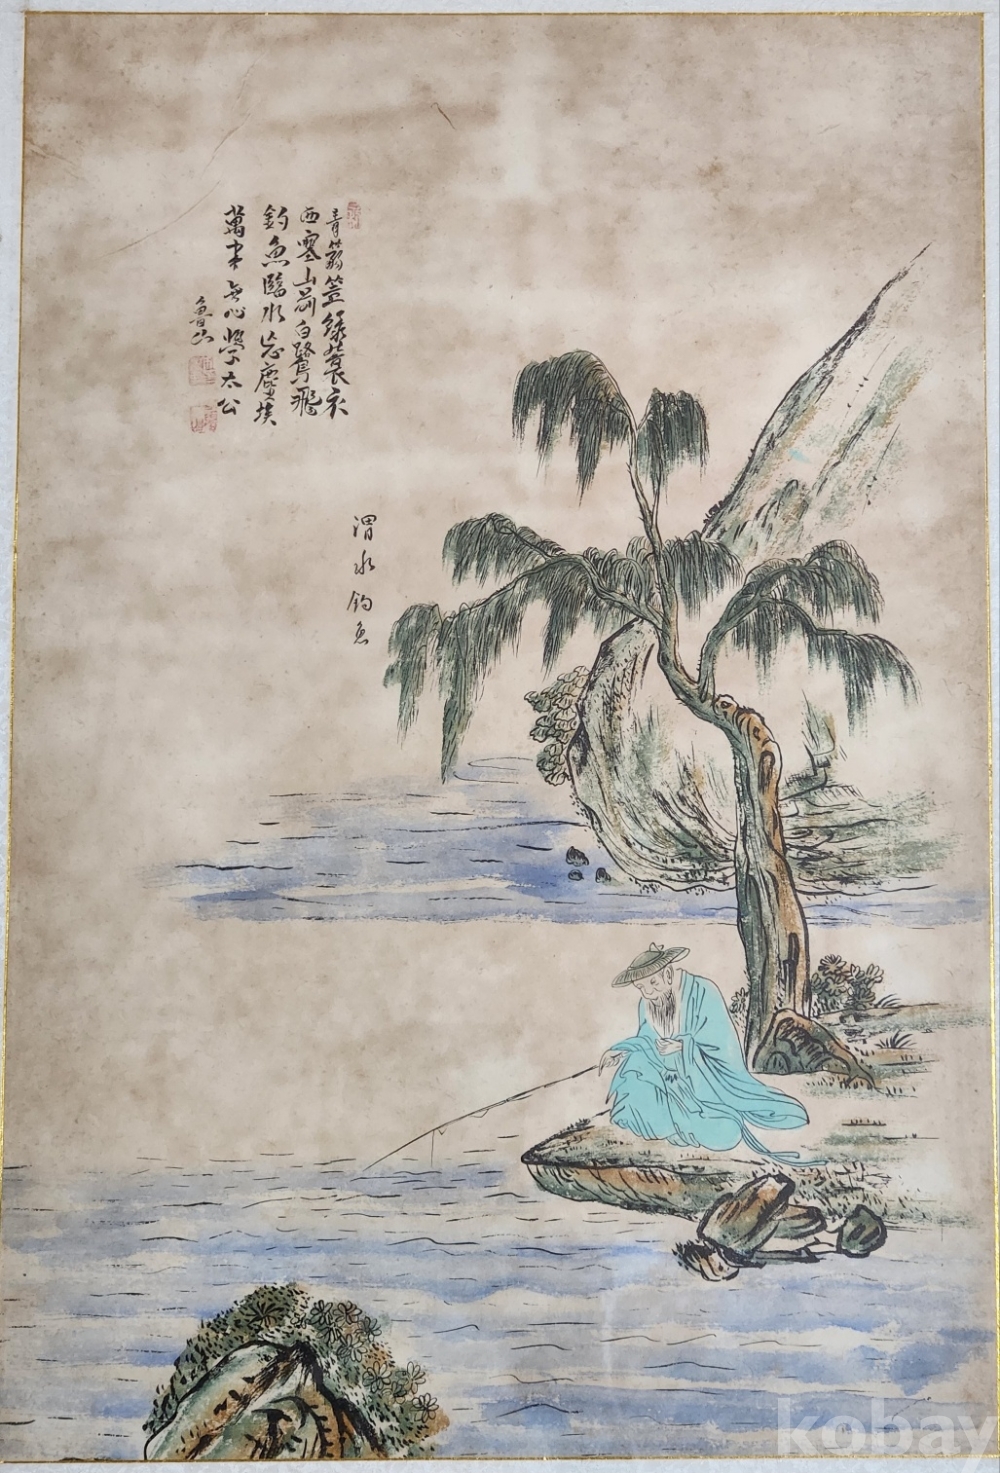 青篛笠綠蓑衣
西塞山前白鷺飛
釣魚臨水忘塵埃
萬事無心學太公
魯山
渭水釣魚
kobay